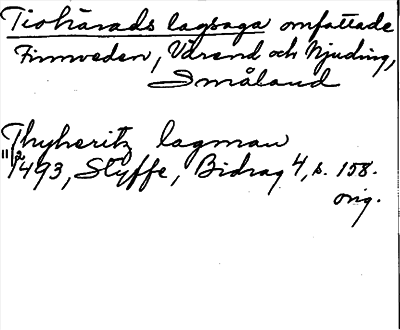 Tiohärads lagsaga omfattade
Finnveden, Värend och Njuding,
Småland
Thyheritz lagman
11/2 1493, Styffe, Bidrag 4, s. 158.
orig.